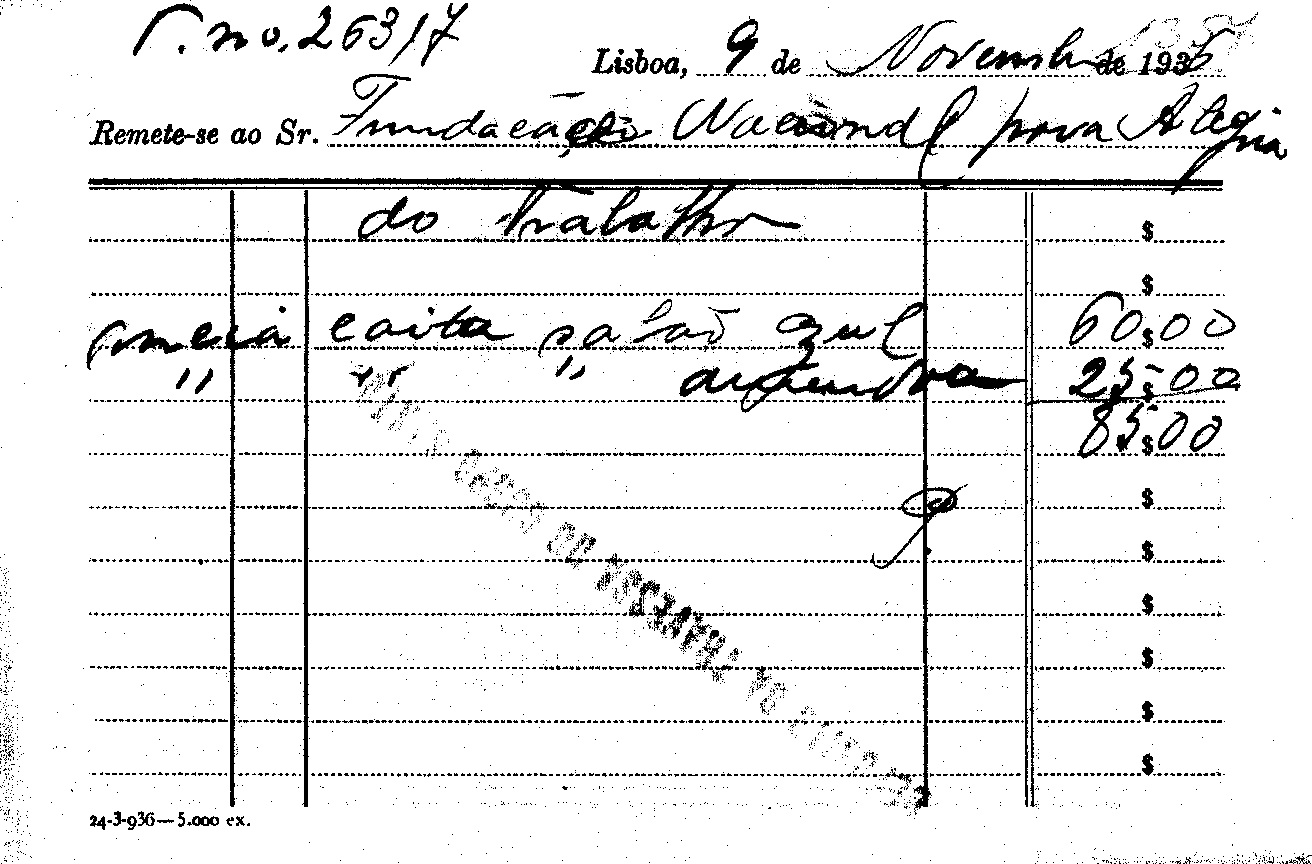 no. 26317
Lisboa, 9 de Novembr de 1936
Remete-se ao Sr. Fundação Nacional para Alegria
do Trabalho
$
$
meia caixa sabão azul 60$00
" " " amendoa 25$00
85$00
$
$
$
$
$
$
24-3-936—5.000 ex.